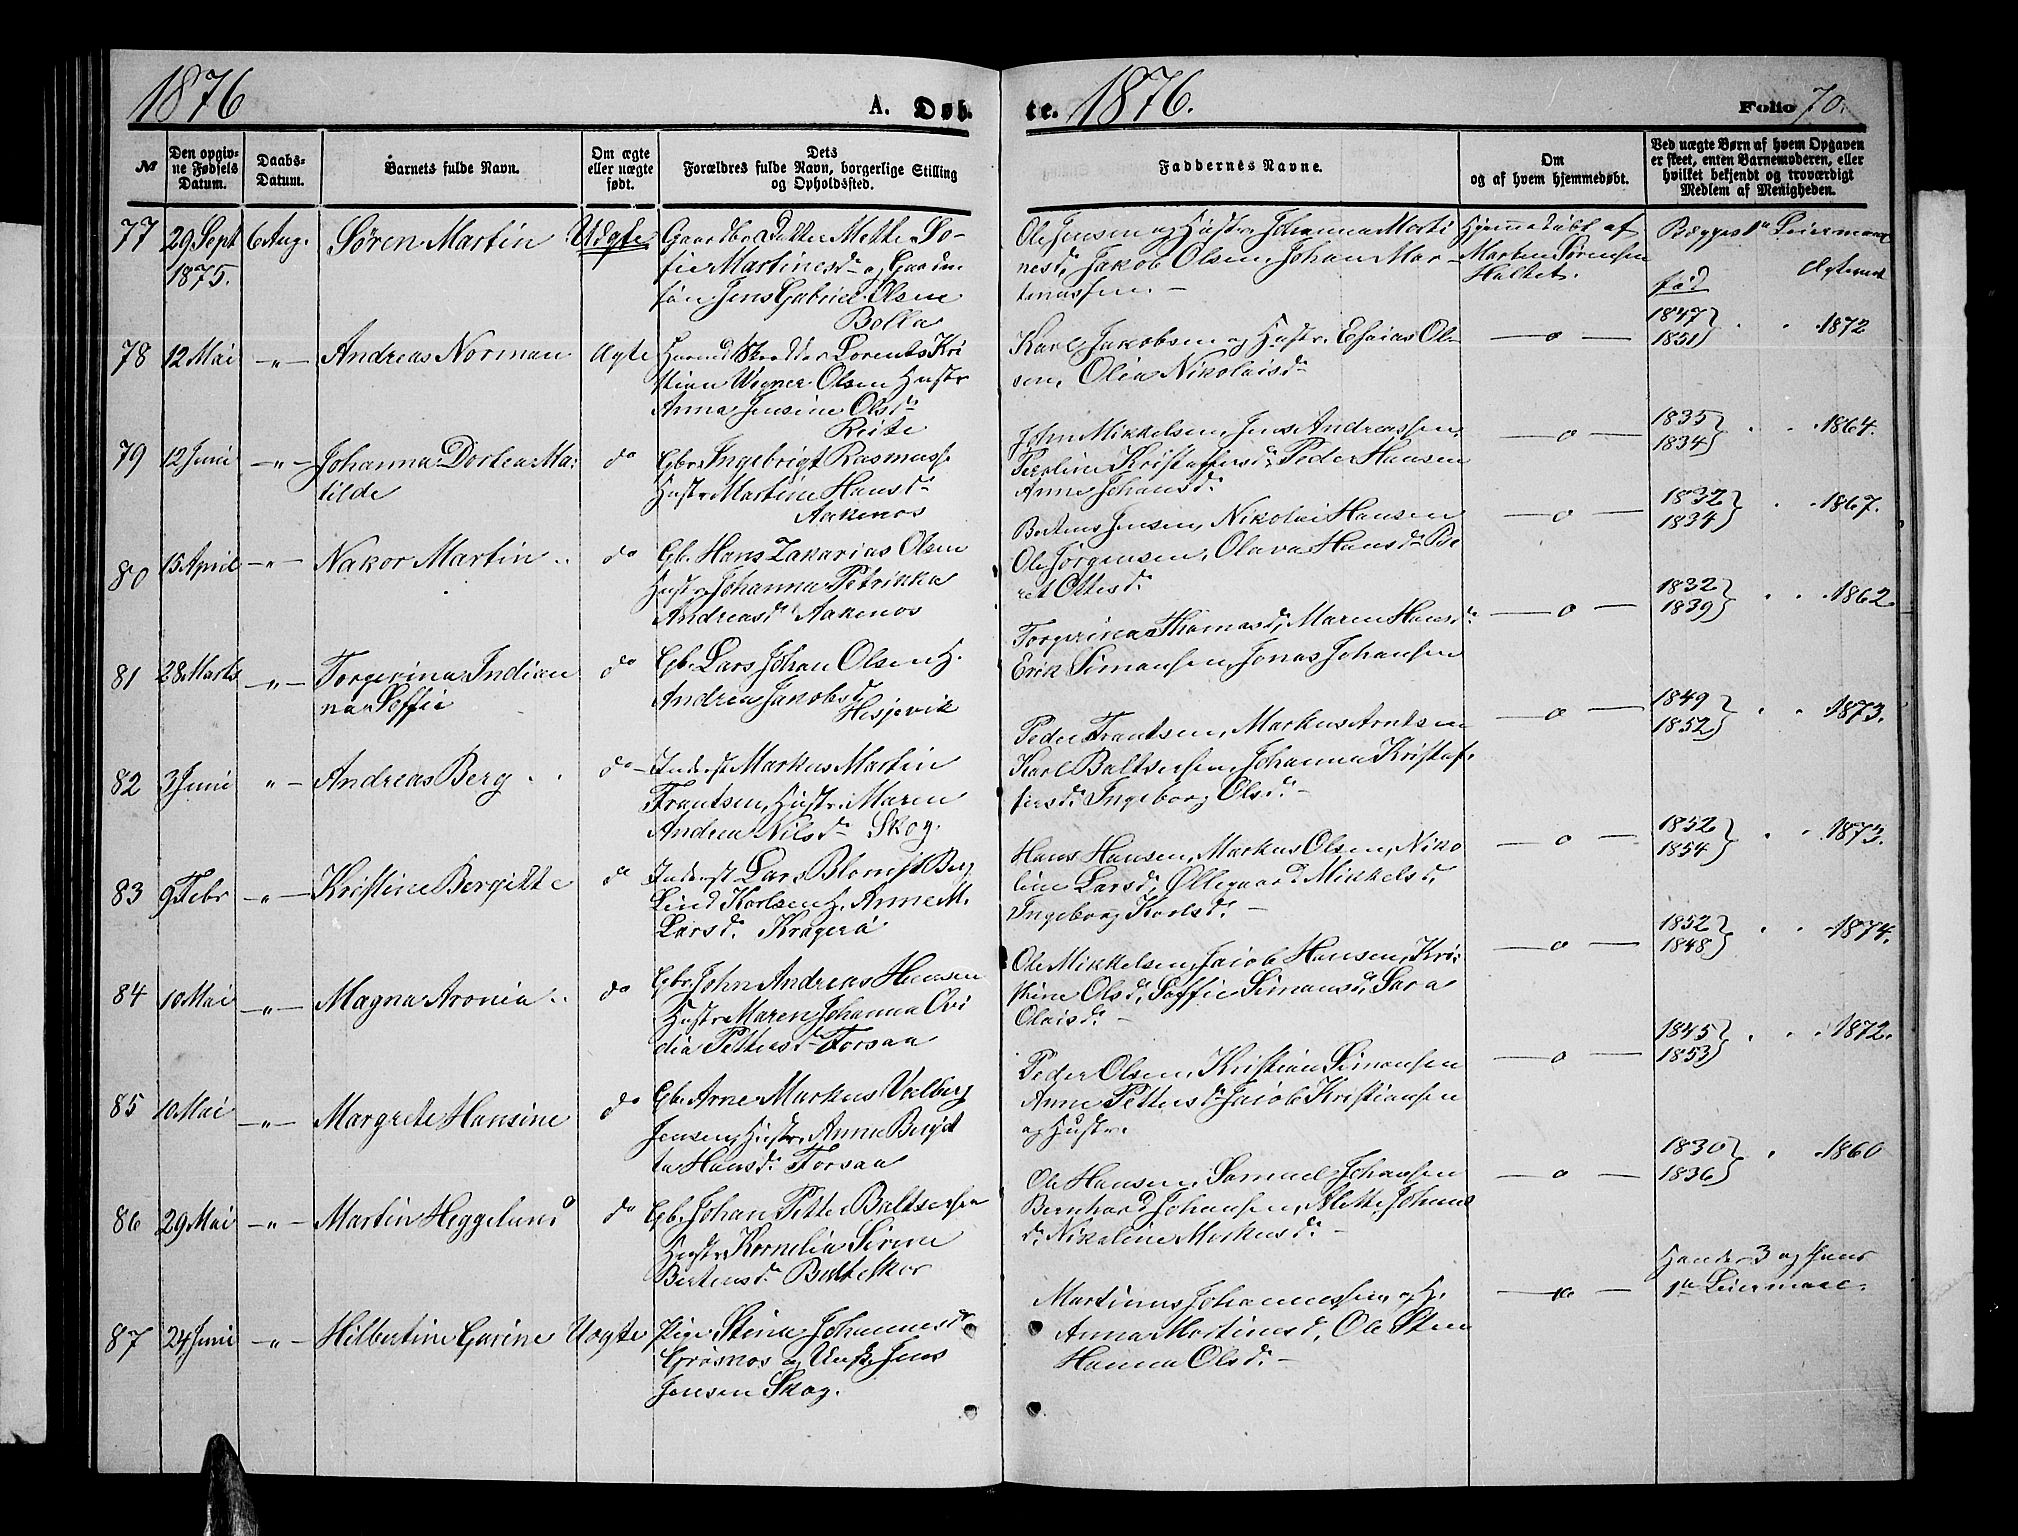 1876
A. Døb-
te. 1876.
Folio 70.
№
Den opgiv-
ne Fødsels
Datum.
Daabs-
Datum.
Barnets fulde Navn.
Om ægte
eller uægte
født.
Dets
Forældres fulde Navn, borgerlige Stilling
og Opholdssted.
Faddernes Navne.
Om
og af hvem hjemmedøbt.
Ved uægte Børn af hvem Opgaven
er skeet, enten Barnemoderen, eller
hvilket bekjendt og troværdigt
Medlem af Menigheden.
77 29 Sept 6 Aug. Sören Martin Uægte Gaardbr Datter Mette So-
1875. fie Martinesdr og Gaardm
sön Jens Gabriel Olsen
Bolla
Ole Jensen og Hustr. Johanna Marti
nesd, Jakob Olsen, Johan Mar-
tinussen. —
Hjemmedøbt af
Morten Sörensen
Haltet.
Begges 1ste Leiermaal
fød Ægteviet
78 12 Mai -"- Andreas Norman Ægte Lorents Kri
stian Wigner Olsen Hustr
Anna Jensine Olsdr
Reite
Karl Jakobsen og Hustr. Esaias Ol-
sen, Olia Nikolaisdr
— o —
1847
1851 " " 1872
79 12 Juni -"- Johanna Dortea Ma-
tilde
do Gbr. Ingebrigt Rasmuss.
Hustr Martine Hansdr
Aakenes
John Mikkelsen, Jens Andreassen,
Peroline Kristoffersdr Peder Hansen
Anne Johansdr.
— o —
1835
1834 " " 1864.
80 15 April -"- Nakor Martin do Gb. Hans Zakarias Olsen
Hustr Johanna Petrikka
Andreasdr Aakenes
Bertens Jensen, Nikolai Hansen
Ole Jörgensen, Olava Hansdr Be
ret Ottesdr.
— o —
1832
1834 " " 1867.
81 28 Marts -"- Torgerina Indian
na Soffie
do Gb. Lars Johan Olsen H.
Andrea Jakobsdr
Hesjevik
Torgerina Thomasd, Maren Hansdr.
Erik Simonsen, Jonas Johansen
— o —
1832
1839 " " 1862
82 3 Juni " Andreas Berg do Inderst Markus Martin
Frantsen, Hustr. Maren
Andrea Nilsdr Skog.
Peder Frantsen, Markus Arntsen
Karl Baltsersen, Johanna Kristof-
fersdr. Ingeborg Olsdr. —
— o —
1849
1852 " " 1873.
83 9 Febr -"- Kristine Bergitte do Inderst Lars Blomqst Berg
Lind Karlsen H. Anne M.
Larsdr. Kragerö
Hans Hansen, Markus Olsen, Niko
line Larsd, Ollegaard Mikkelsd,
Ingeborg Karlsdr. —
— o —
1852
1854 " " 1873.
84 10 Mai -"- Magna Aronia do Gbr. John Andreas Hansen
Hustr Maren Johanna Ovi
dia Pettersdr Forsaa
Ole Mikkelsen, Jaiob Hansen, Kri-
stine Olsd, Soffie Simonsd, Sara
Olaisdr. —
— o —
1852
1848 " " 1874.
85 10 Mai -"- Margrete Hansine do Gb. Arne Markus Valberg
Jensen, Hustr. Anna Bergit
ta Hansdr. Forsaa
Peder Olsen, Kristian Simonsen
Anne Pettersdr Jaiob Kristiansen
og Hustr.
— o —
1845
1853 " " 1872.
86 29 Mai -"- Martin Heggelund do Gb. Johan Petter Baltsersen
Hustr Kornelia Sirene
Bertensdr. Buteskor
Ole Hansen, Samuel Johansen
Bernhard Johansen, Mette Johans
dr. Nikoline Markusdr. —
— o —
1830
1836 " 1860
87 24 Juni -"- Hilbertine Garine Uægte Pige Stina Johannesdr
Gräsnes og Ungk. Jens
Jensen Skog.
Martinus Johannessen og H.
Anna Mortensd, Ole Sten
Hanna Olsdr. —
— o —
Hendes 3 og Jens
1ste Leiermaal.